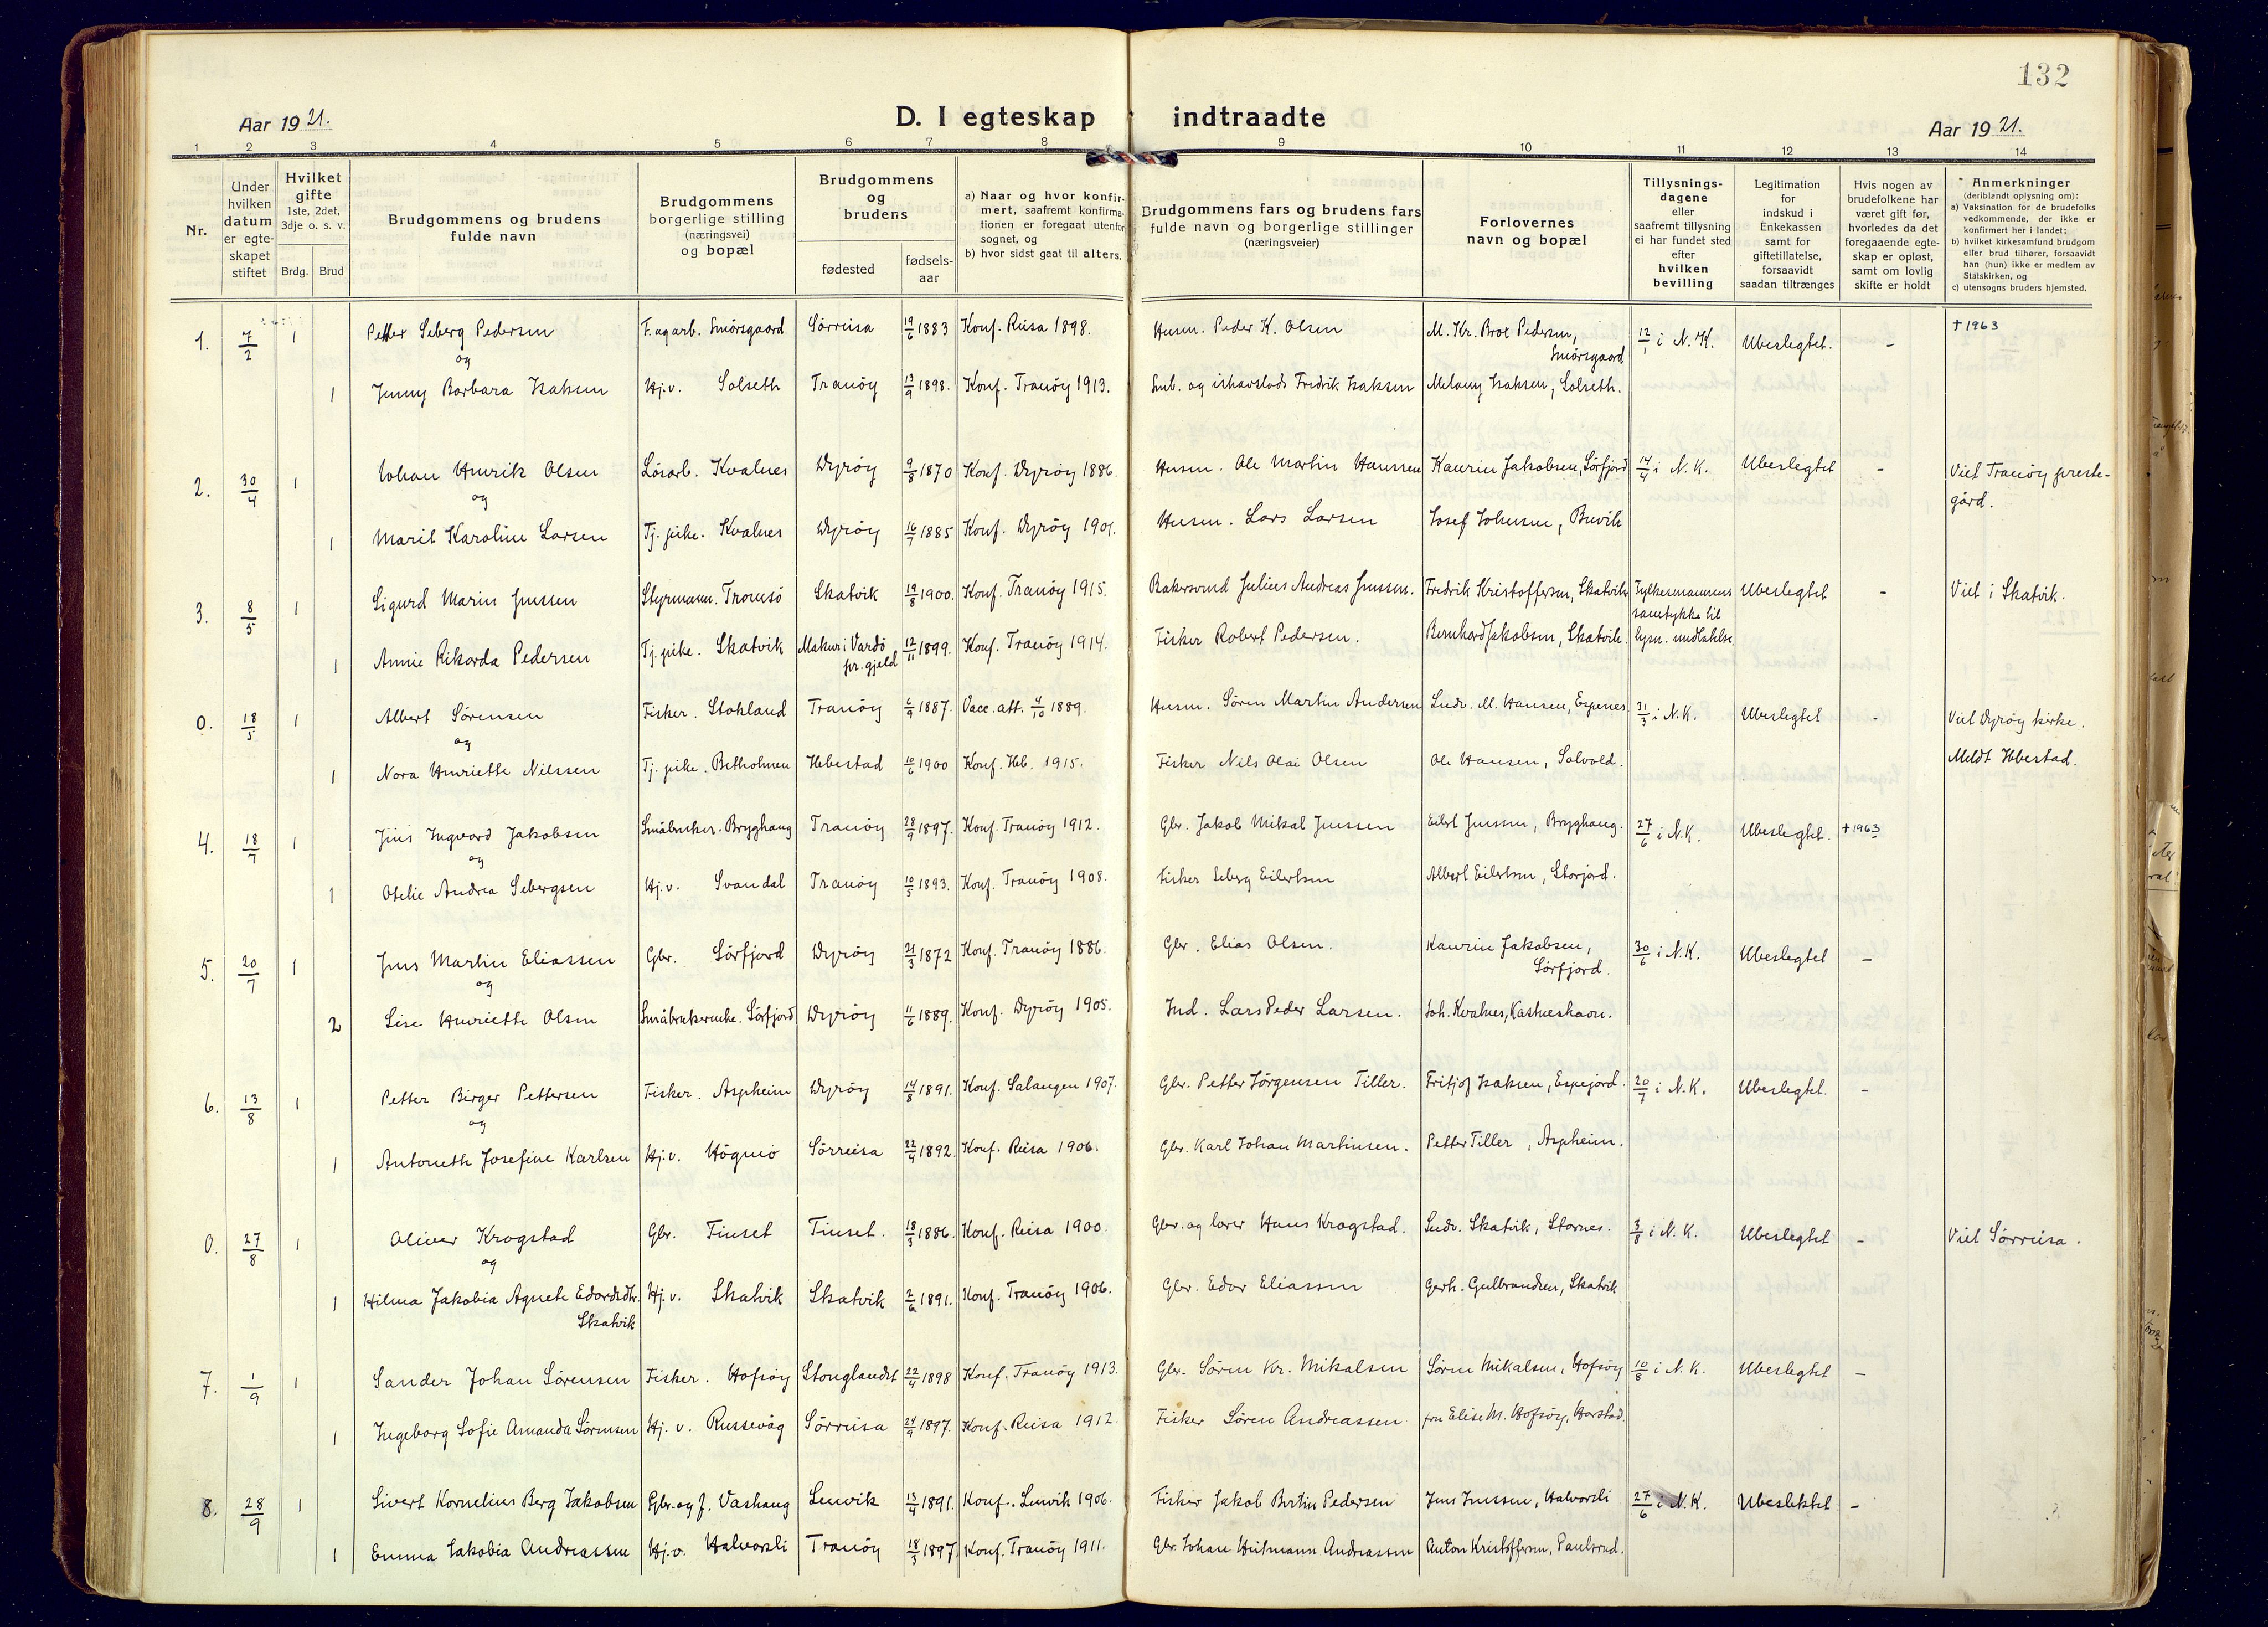 132
Aar 1921.
D. I egteskap indtraadte
Aar 1921.
1 2 3 4 5 6 7 8 9 10 11 12 13 14
Nr.
Under hvilken datum er egte-skapet stiftet
Hvilket gifte 1ste, 2det, 3dje o. s. v.
Brdg. Brud
Brudgommens og brudens fulde navn
Brudgommens borgerlige stilling (næringsvei) og bopæl
Brudgommens og brudens
fødested
fødsels-aar
a) Naar og hvor konfir-mert, saafremt konfirma-tionen er foregaat utenfor sognet, og
b) hvor sidst gaat til alters.
Brudgommens fars og brudens fars fulde navn og borgerlige stillinger (næringsveier)
Forlovernes navn og bopæl
Tillysnings-dagene eller saafremt tillysning ei har fundet sted efter hvilken bevilling
Legitimation for indskud i Enkekassen samt for giftetillatelse, forsaavidt saadan tiltrænges
Hvis nogen av brudefolkene har været gift før, hvorledes da det foregaaende egte-skap er opløst, samt om lovlig skifte er holdt
Anmerkninger (deriblandt oplysning om):
a) Vaksination for de brudefolks vedkommende, der ikke er konfirmert her i landet;
b) hvilket kirkesamfund brudgom eller brud tilhører, forsaavidt han (hun) ikke er medlem av Statskirken, og
c) utensogns bruders hjemsted.
1. 7/2 1 Petter Seberg Pedersen F. og arb. Smörsgaard Sörreisa 19/6 1883 Konf. Reisa 1898. Husm. Peder K. Olsen M. Kr. Brox Pedersen, Smörsgaard 12/1 i N. K. Ubeslegtet. - † 1963
og
1 Jenny Barbara Isaksen Hj.v. Solseth Tranöy 13/9 1898. Konf. Tranöy 1913. Smb. og ishavsskods Fredrik Isaksen Melany Isaksen, Solseth.
2. 30/4 1 Johan Henrik Olsen Lösarb. Kvalnes Dyröy 9/8 1870 Konf. Dyröy 1886. Husm. Ole Martin Hanssen Kaurin Jakobsen, Sörfjord 14/4 i N. K. Ubeslegtet - Viet Tranöy preste-gård.
og
1 Marit Karoline Larsen Tj. pike. Kvalnes Dyröy 16/7 1885 Konf. Dyröy 1901. Husm. Lars Larsen Josef Johnsen, Buvik
3. 8/5 1 Sigurd Marin Jenssen Styrmann. Tromsö Skatvik 19/8 1900. Konf. Tranöy 1915. Bakersvend Julius Andreas Jenssen. Fredrik Kristoffersen, Skatvik Fylkesmannens samtykke til lysn. undlatelse Ubeslegtet - Viet i Skatvik.
1 Annie Rikarda Pedersen Tj. pike. Skatvik Makur i Vardö pr.gjeld 12/11 1899. Konf. Tranöy 1914. Fisker Robert Pedersen. Bernhard Jakobsen, Skatvik.
0. 18/5 1 Albert Sörensen Fisker. Stokland Tranöy 6/9 1887. Vacc. att. 4/10 1889. Husm. Sören Martin Andersen Ludv. M. Hansen, Espenes 31/3 i N.K. Ubeslegtet - Viet Dyröy kirke.
og
1 Nora Henriette Nilssen Tj. pike. Betholmen Hebestad 10/6 1900 Konf. Heb. 1915. Fisker Nils Olai Olsen Ole Hansen, Solvold. Meldt Ibestad.
4. 18/7 1 Jens Ingvard Jakobsen Småbruker. Bryghaug Tranöy 28/9 1897. Konf. Tranöy 1912. Gbr. Jakob Mikal Jenssen Eilert Jenssen, Bryghaug. 27/6 i N.K. Ubeslegtet. † 1963
og
1 Otelie Andrea Sebergsen Hj.v. Svandal Tranöy 10/5 1893. Konf. Tranöy 1908. Fisker Seberg Eilertsen Albert Eilertsen, Storjord.
5. 20/7 1 Jens Martin Eliassen Gbr. Sörfjord Dyröy 21/3 1872 Konf. Tranöy 1886. Gbr. Elias Olsen. Kaurin Jakobsen, Sörfjord. 30/6 i N.K. Ubeslegtet -
og
2 Lise Henriette Olsen Småbrukerenke. Sörfjord Dyröy 11/6 1889. Konf. Dyröy 1905. Ind. Lars Peder Larsen. Joh. Kvalnes, Kastneshavn.
6. 13/8 1 Petter Birger Pettersen Fisker. Aspheim Dyröy 14/8 1891. Konf. Salangen 1907. Gbr. Petter Jörgensen Tiller. Fritjof Isaksen, Espejord. 20/7 i N.K. Ubeslegtet. -
og
1 Antoneth Josefine Karlsen Hj.v. Högmo Sörreisa 22/4 1892. Konf. Reisa 1906. Gbr. Karl Johan Martinsen. Petter Tiller, Aspheim.
0. 27/8 1 Oliver Krogstad Gbr. Finset Finset. 18/3 1886. Konf. Reisa 1900. Gbr. og lærer Hans Krogstad. Ludv. Skatvik, Stornes. 3/8 i N. K. Ubeslegtet - Viet Sörreisa.
og
1 Hilma Jakobia Agnete Edvardsdtr. Skatvik Hj.v. Skatvik Skatvik 2/6 1891. Konf. Tranöy 1906. Gbr. Edvr Eliassen Gerh. Gulbrandsen, Skatvik
7. 1/9 1 Sander Johan Sörensen Fisker. Hofsöy Stonglandet 22/4 1898 Konf. Tranöy 1913. Gbr. Sören Kr. Mikalsen Sören Mikalsen, Hofsöy 10/8 i N. K. Ubeslegtet -
1 Ingeborg Sofie Amanda Sörensen Hj. v. Russevåg Sörreisa 24/9 1897. Konf. Reisa 1912. Fisker Sören Andreassen fru Elise M. Hofsöy, Harstad.
8. 28/9 1 Sivert Kornelius Berg Jakobsen Gbr. og f. Vashaug Lenvik 13/4 1891. Konf. Lenvik 1906. Fisker Jakob Bertin Pedersen Jens Jenssen, Halvorsli 27/6 i N.K. Ubeslektet -
1 Emma Jakobia Andreassen Hj.v. Halvorsli Tranöy 18/3 1897 Konf. Tranöy 1911. Gbr. Johan Hartmann Andreassen Anton Kristoffersen, Paulsrud.